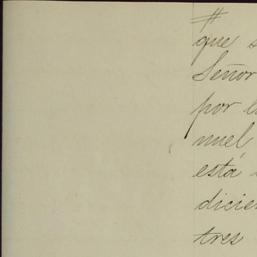 que s
Señor
por l
nuel
está
dicie
tres